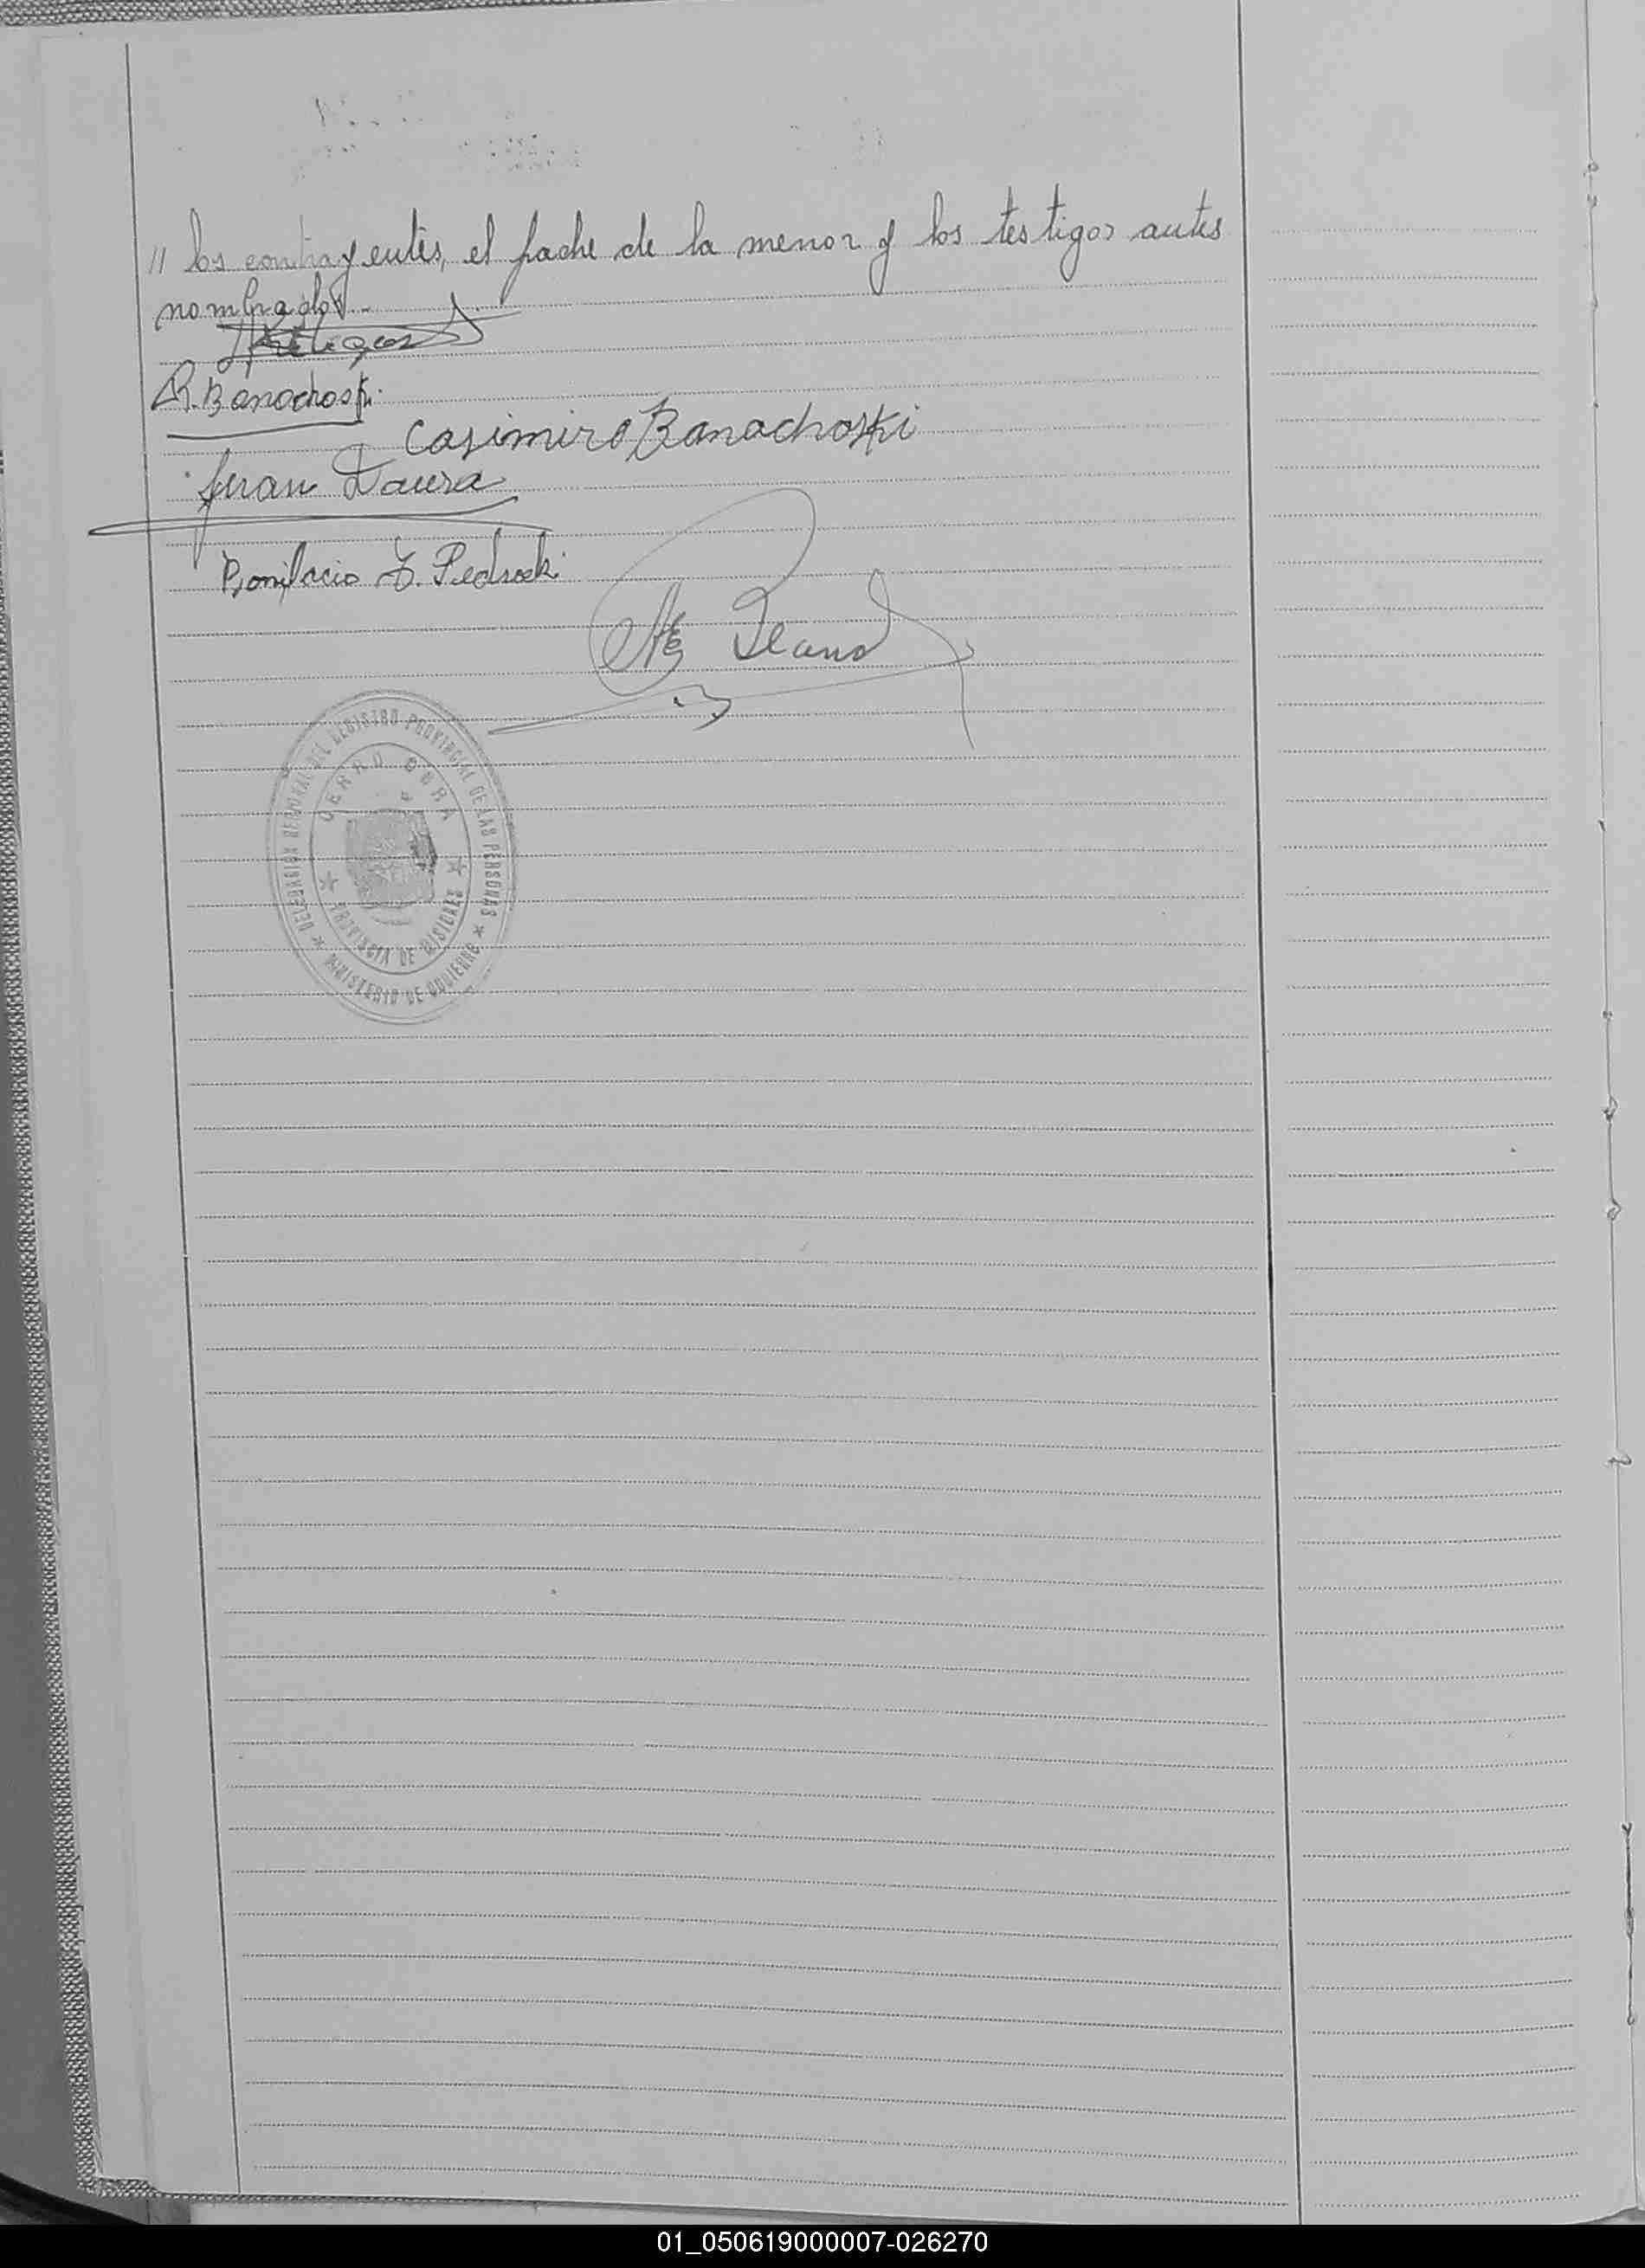 " los contrayentes, el padre de la menor y los testigos antes
nombrados.-
R. Banachoski.
Casimiro Banachoski
Juan Daura
Bonifacio
DELEGACION REGIONAL DEL REGISTRO PROVINCIAL DE LAS PERSONAS
CERRO CORA
PROVINCIA DE MISIONES
MINISTERIO DE GOBIERNO
01_050619000007-026270